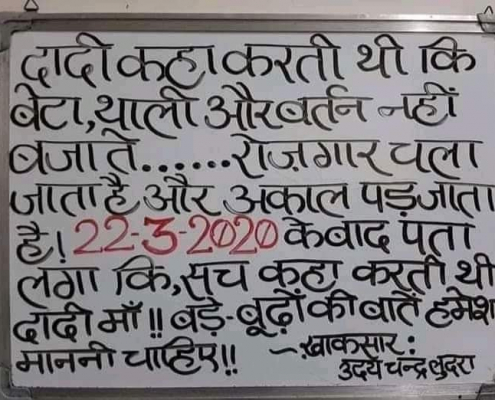 दादी कहा करती थी कि
बेटा, थाली और बर्तन नहीं
बजाते......रोज़गार चला
जाता है और अकाल पड़ जाता
है। 22-3-2020 के बाद पता
लगा कि, सच कहा करती थी
दादी माँ!! बड़े-बूढ़ों की बातें हमेश
माननी चाहिए!! ~ख़ाकसार:
उदय चन्द्र लुदरा